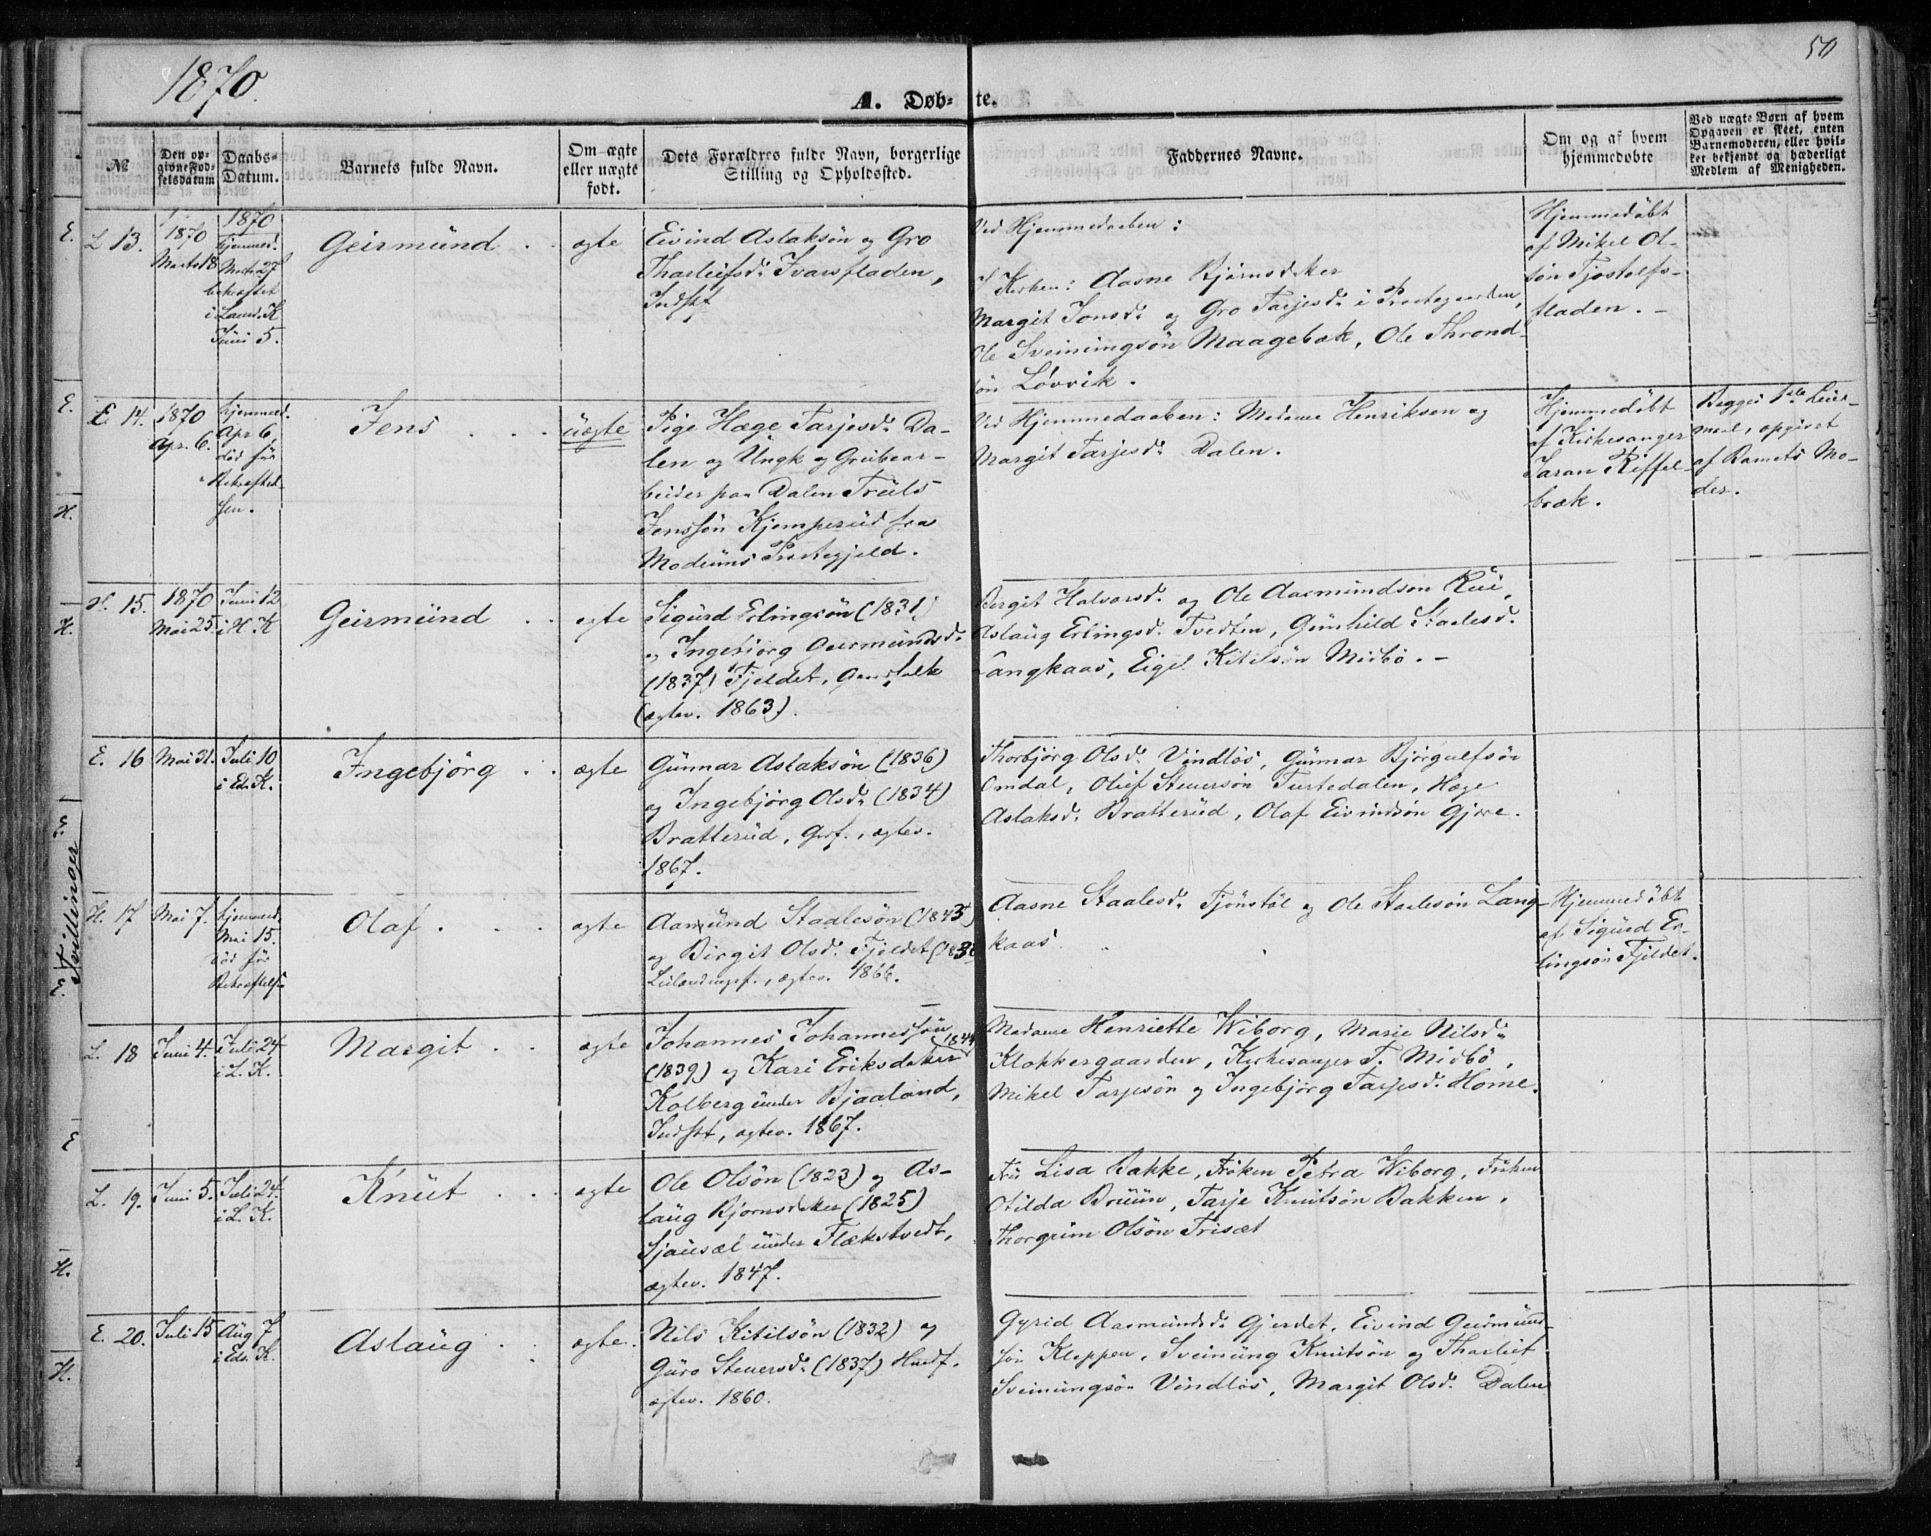 1870.
50
A. Døb-
te.
№
Den op-
givne Fød-
selsdatum
Daabs-
Datum.
Barnets fulde Navn.
Om ægte
eller uægte
født.
Dets Forældres fulde Navn, borgerlige
Stilling og Opholdssted.
Faddernes Navne.
Om og af hvem
hjemmedøbte
Ved uægte Børn af hvem
Opgaven er skeet, enten
Barnemoderen, eller hvil-
ket bekjendt og hæderligt
Medlem af Menigheden.
L 13.
1870
Marts 18
1870
hjemmed.
Marts 27
bekræftet
i Laurd. K
Juni 5.
Geirmund
ægte
Eivind Aslaksøn og Gro
Tharleifsd. Ivarsfladen,
Indst
Ved Hjemmedaaben:
I Kirken: Aasne Bjørnsdtter
Margit Jonsd. og Gro Tarjesd. i Præstegaarden,
Ole Sveinungsøn Maagebæk, Ole Thrond-
søn Løvvik.
Hjemmedøbt
af Mikel Ol-
søn Tjostolfs-
fladen.
E 14.
1870
Apr. 6.
hjemmed.
Apr 6,
død før
Bekræftel-
sen.
Jens
uægte
Pige Hæge Tarjesd. Da-
len og Ungk og Grubear-
beider paa Dalen Truls
Jenssøn Kjemperud fra
Modums Præstegjeld.
Ved Hjemmedaaben: Madame Henrikson og
Margit Tarjesd. Dalen.
Hjemmedøbt
af Kirkesanger
Jaran Riffel-
bræk.
Begges 1ste Leier-
maal, opgivet
af Barnets Mo-
der.
H. 15.
1870
Mai 25.
Juni 12
i H. K
Geirmund
ægte
Sigurd Erlingsøn (1831)
og Ingebjørg Geirmundsd.
(1837) Fjeldet, Gaardfolk
(ægtev. 1863).
Birgit Halvorsd. og Ole Aasmundsøn Rui,
Aslaug Erlingsd. Tvedten, Gunhild Staalesd.
Langkaas, Eigel Kitilsøn Midbø.
E. 16
Mai 31.
Juli 10
i Ed. K.
Ingebjørg
ægte
Gunnar Aslaksøn (1836)
og Ingebjørg Olsd. (1834)
Bratterud, Grf., ægtev.
1867.
Thorbjørg Olsd. Vindløs, Gunnar Bjørgulfsøn
Omdal, Oluf Steversøn Turtedalen, Hæge
Aslaksd. Bratterud, Olaf Eivindsøn Gjere.
H. 17
Mai 7.
hjemmed.
Mai 15.
død før
Bekræftels.
Olaf
ægte
Aasmund Staalesøn (1843)
og Birgit Olsd. Fjeldet (1838
Leilændingsf., ægtev. 1866.
Aasne Staalesd. Tjønstøl og Ole Staalesøn Lang-
kaas
Hjemmedøbt
af Sigurd Er-
lingsøn Fjeldet.
L. 18
Juni 4.
Juli 24
i L. K.
Margit
ægte
Johannes Johannessøn
(1839) og Kari Eriksdatter (1844
Kolberg under Bjaaland,
Indst, ægtev. 1867.
Madame Henriette Wiborg, Marie Nilsd.
Klokkergaarden, Kirkesanger T. Midbø,
Mikel Tarjesøn og Ingebjørg Tarjesd. Home.
L. 19.
Juni 5.
Juli 24.
i L. K.
Knut
ægte
Ole Olsøn (1823) og As-
laug Bjørnsdtter (1825)
Sjausæt under Flækstvedt,
ægtev. 1847.
Fru Lisa Bakke, Frøken Petra Wiborg, Frøken
Otilda Bruun, Tarje Knutsøn Bakken,
Thorgrim Olsøn Trisæt
E. 20.
Juli 15
Aug 7
i Eds. K.
Aslaug
ægte.
Nils Kitilsøn (1832) og
Guro Steversd. (1837) Husf.
ægtev. 1860.
Gyrid Aasmundsd. Gjerdet, Eivind Geirmund-
søn Kleppen, Sveinung Knutsøn og Tharleif
Sveinungsøn Vindløs, Margit Olsd. Dalen
E.
E.
H.
H.
E
Tvillinger
E.
E
H.
H.